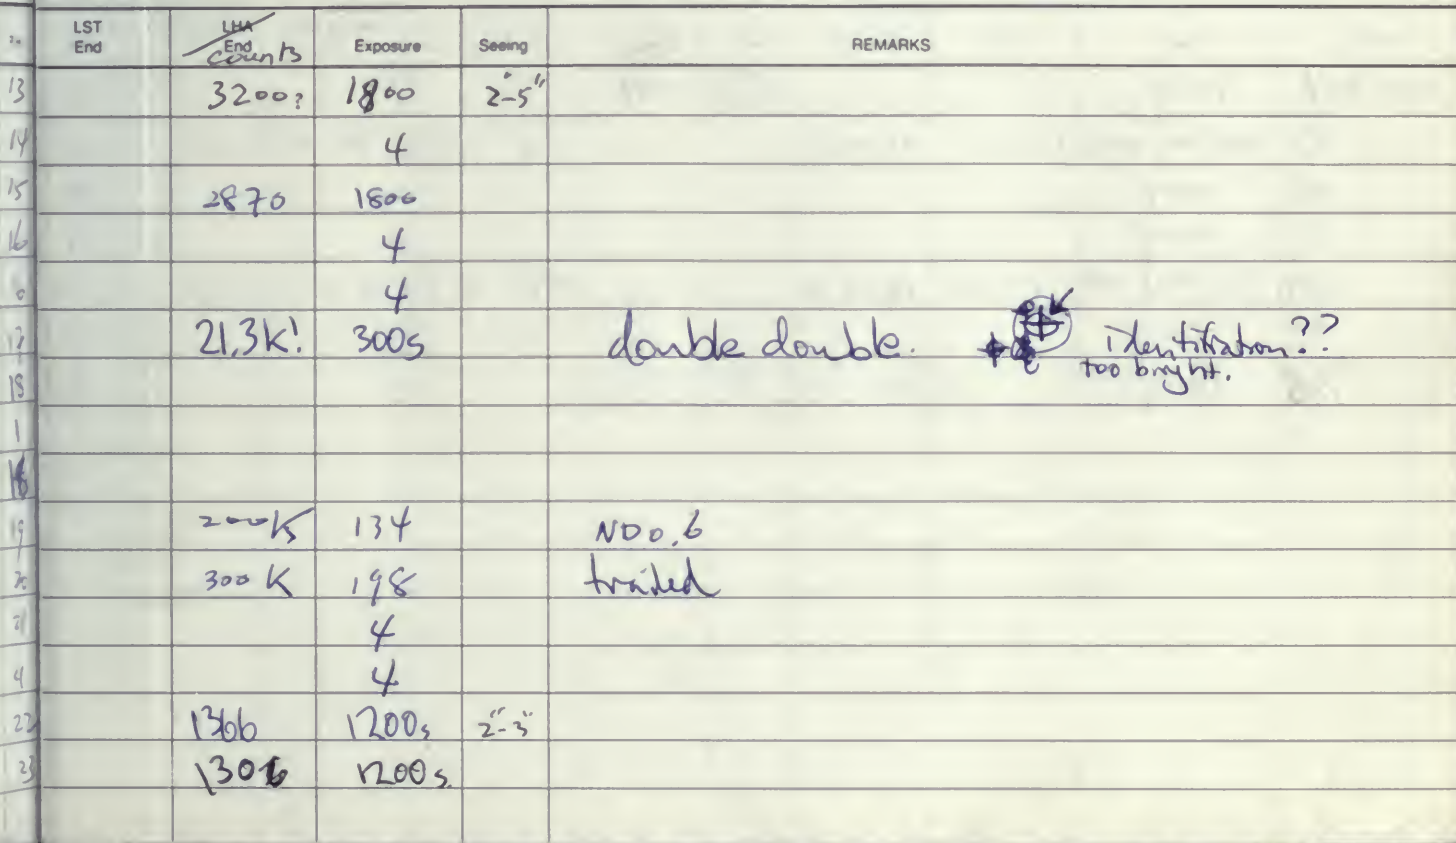 LST End LHA End counts Exposure Seeing REMARKS
13 3200? 1800 2"-5"
14 4
15 2870 1800
16 4
4
17 21.3K! 300s double double. identifiration??
too bright.
18
1
18
19 200K 134 ND0.6
20 300K 198 trailed
21 4
4 4
22 1366 1200s 2"-3"
23 1306 1200s.